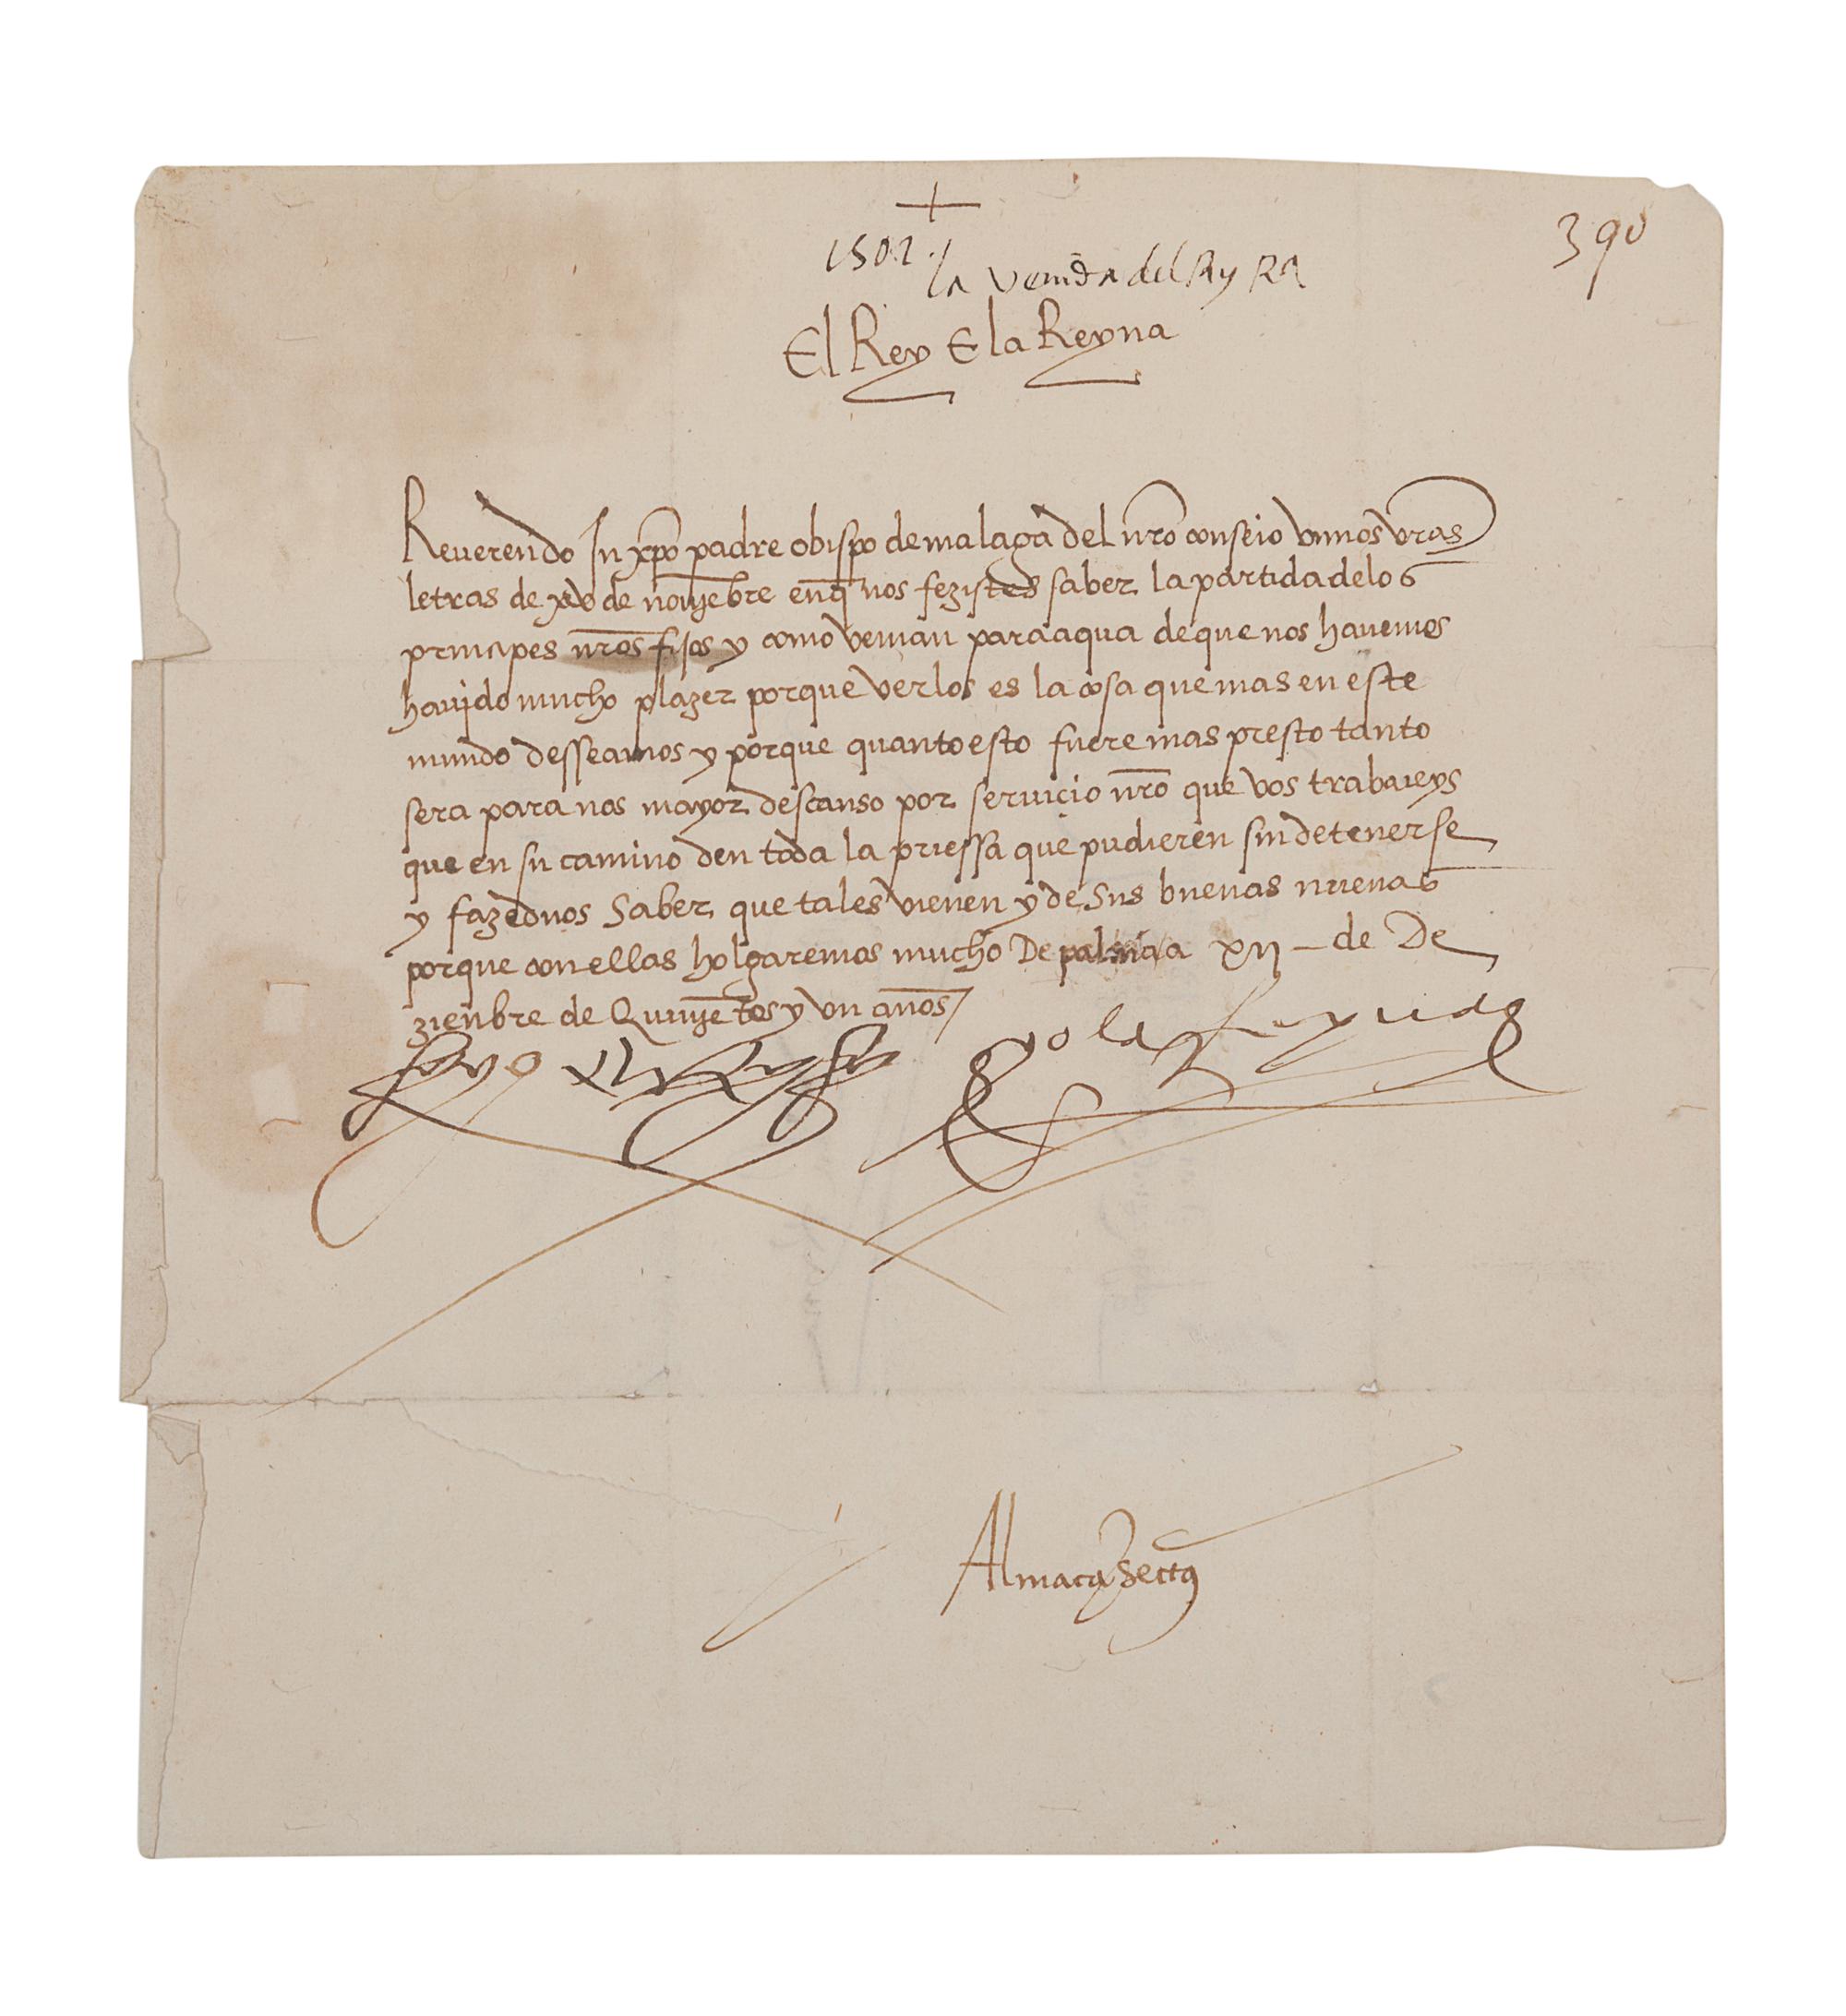 1501
390
la venida del Rey
El Rey E la Reyna
Reuerendo In xpo padre obispo de malaga del nro conseio vimos vras
letras de de nouyebre enq nos fezistes saber la partida delos
principes nros fijos y como venian para aqua de que nos hauemos
hauido mucho plazer porque verlos es la cosa que mas en este
mundo desseamos y porque quanto esto fuere mas presto tanto
sera para nos mayor descanso por seruicio nro que vos trabaieys
que en su camino den toda la priessa que pudieren sin detenerse
y fazednos saber que tales vienen y de sus buenas nueuas
porque con ellas holgaremos mucho De palma a xij - de De
zienbre de Quinyetos y vn anos /
yo el Rey yo la Reyna
Almaça secrt